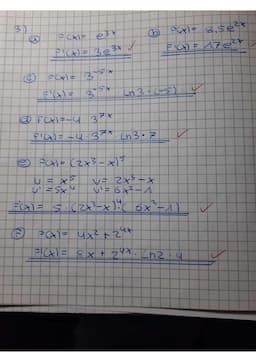 3)
a) f(x) = e^3x
f'(x) = 3e^3x ✓
b) f(x) = 8.5e^2x
f'(x) = 17e^2x ✓
c) f(x) = 3^-5x
f'(x) = 3^-5x · ln3 · (-5) ✓
d) f(x) = -4 · 3^7x
f'(x) = -4 · 3^7x · ln3 · 7 ✓
e) f(x) = (2x³-x)^5
u = x^5 v = 2x³-x
u' = 5x^4 v' = 6x²-1
f'(x) = 5 · (2x³-x)^4 · (6x²-1) ✓
f) f(x) = 4x² + 2^4x
f'(x) = 8x + 2^4x · ln2 · 4 ✓